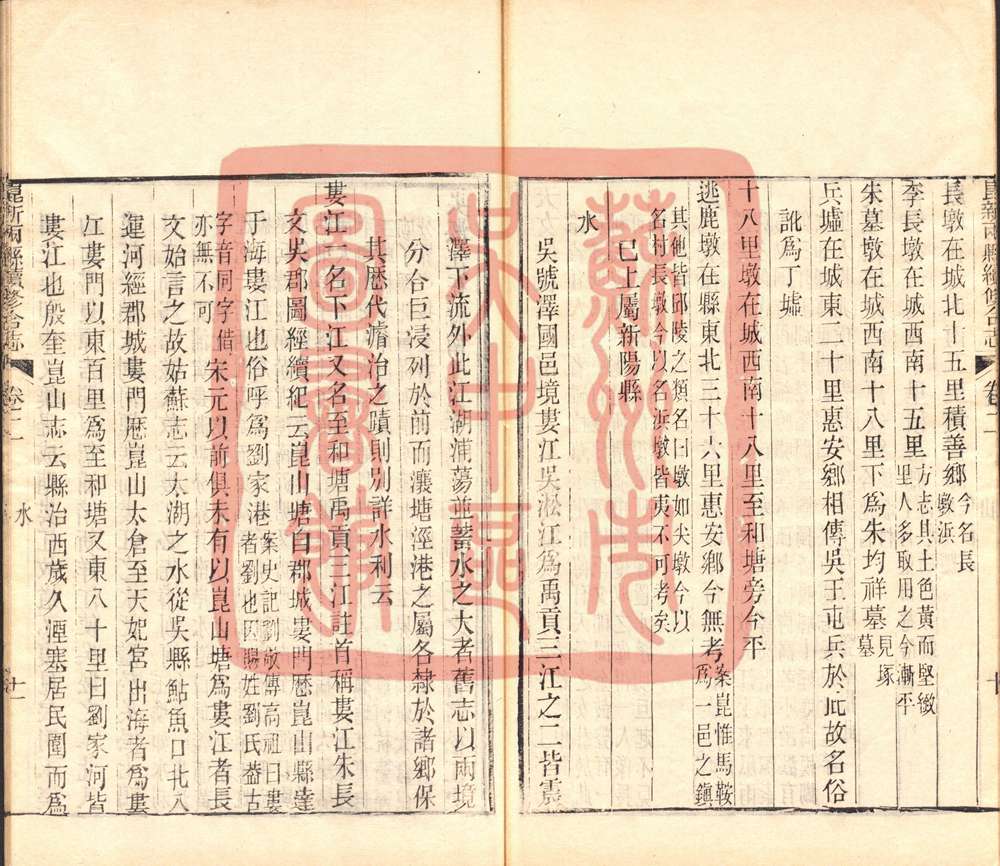 長墩在城北十五里積善鄉今名長墩浜
李長墩在城西南十五里方志具土色黃而堅緻里人多取用之今漸平
朱墓墩在城西南十八里下爲朱均祥墓見塚墓
兵墟在城東二十里惠安鄉相傳吳王屯兵於此故名俗
訛爲丁墟
十八里墩在城西南十八里至和塘旁今平
逃鹿墩在縣東北三十六里惠安鄉今無考案崑惟馬鞍爲一邑之鎭
其他皆邱陵之類名曰墩如尖墩今以名村長墩今以名浜墩皆夷不可考矣
已上屬新陽縣
水
吳號澤國邑境婁江吳淞江爲禹貢三江之二皆震
澤下流外此江湖浦蕩並蓄水之大者舊志以兩境
分合巨浸列於前而瀼塘涇港之屬各隸於諸鄉保
其歷代濬治之蹟則別詳水利云
婁江一名下江又名至和塘禹貢三江註首稱婁江朱長
文吳郡圖經續紀云崑山塘自郡城婁門歷崑山縣達
于海婁江也俗呼爲劉家港案史記劉敬傳高祖曰婁者劉也因賜姓劉氏葢古
字音同字借亦無不可宋元以前俱未有以崑山塘爲婁江者長
文始言之故姑蘇志云太湖之水從吳縣鮎魚口北入
運河經郡城婁門歷崑山太倉至天妃宮出海者爲婁
江婁門以東百里爲至和塘又東八十里曰劉家河皆
婁江也殷奎崑山志云縣治西歲久湮塞居民圍而爲
崑新兩縣續修合志
卷二
水
十一
蘇州市吳中區圖書館